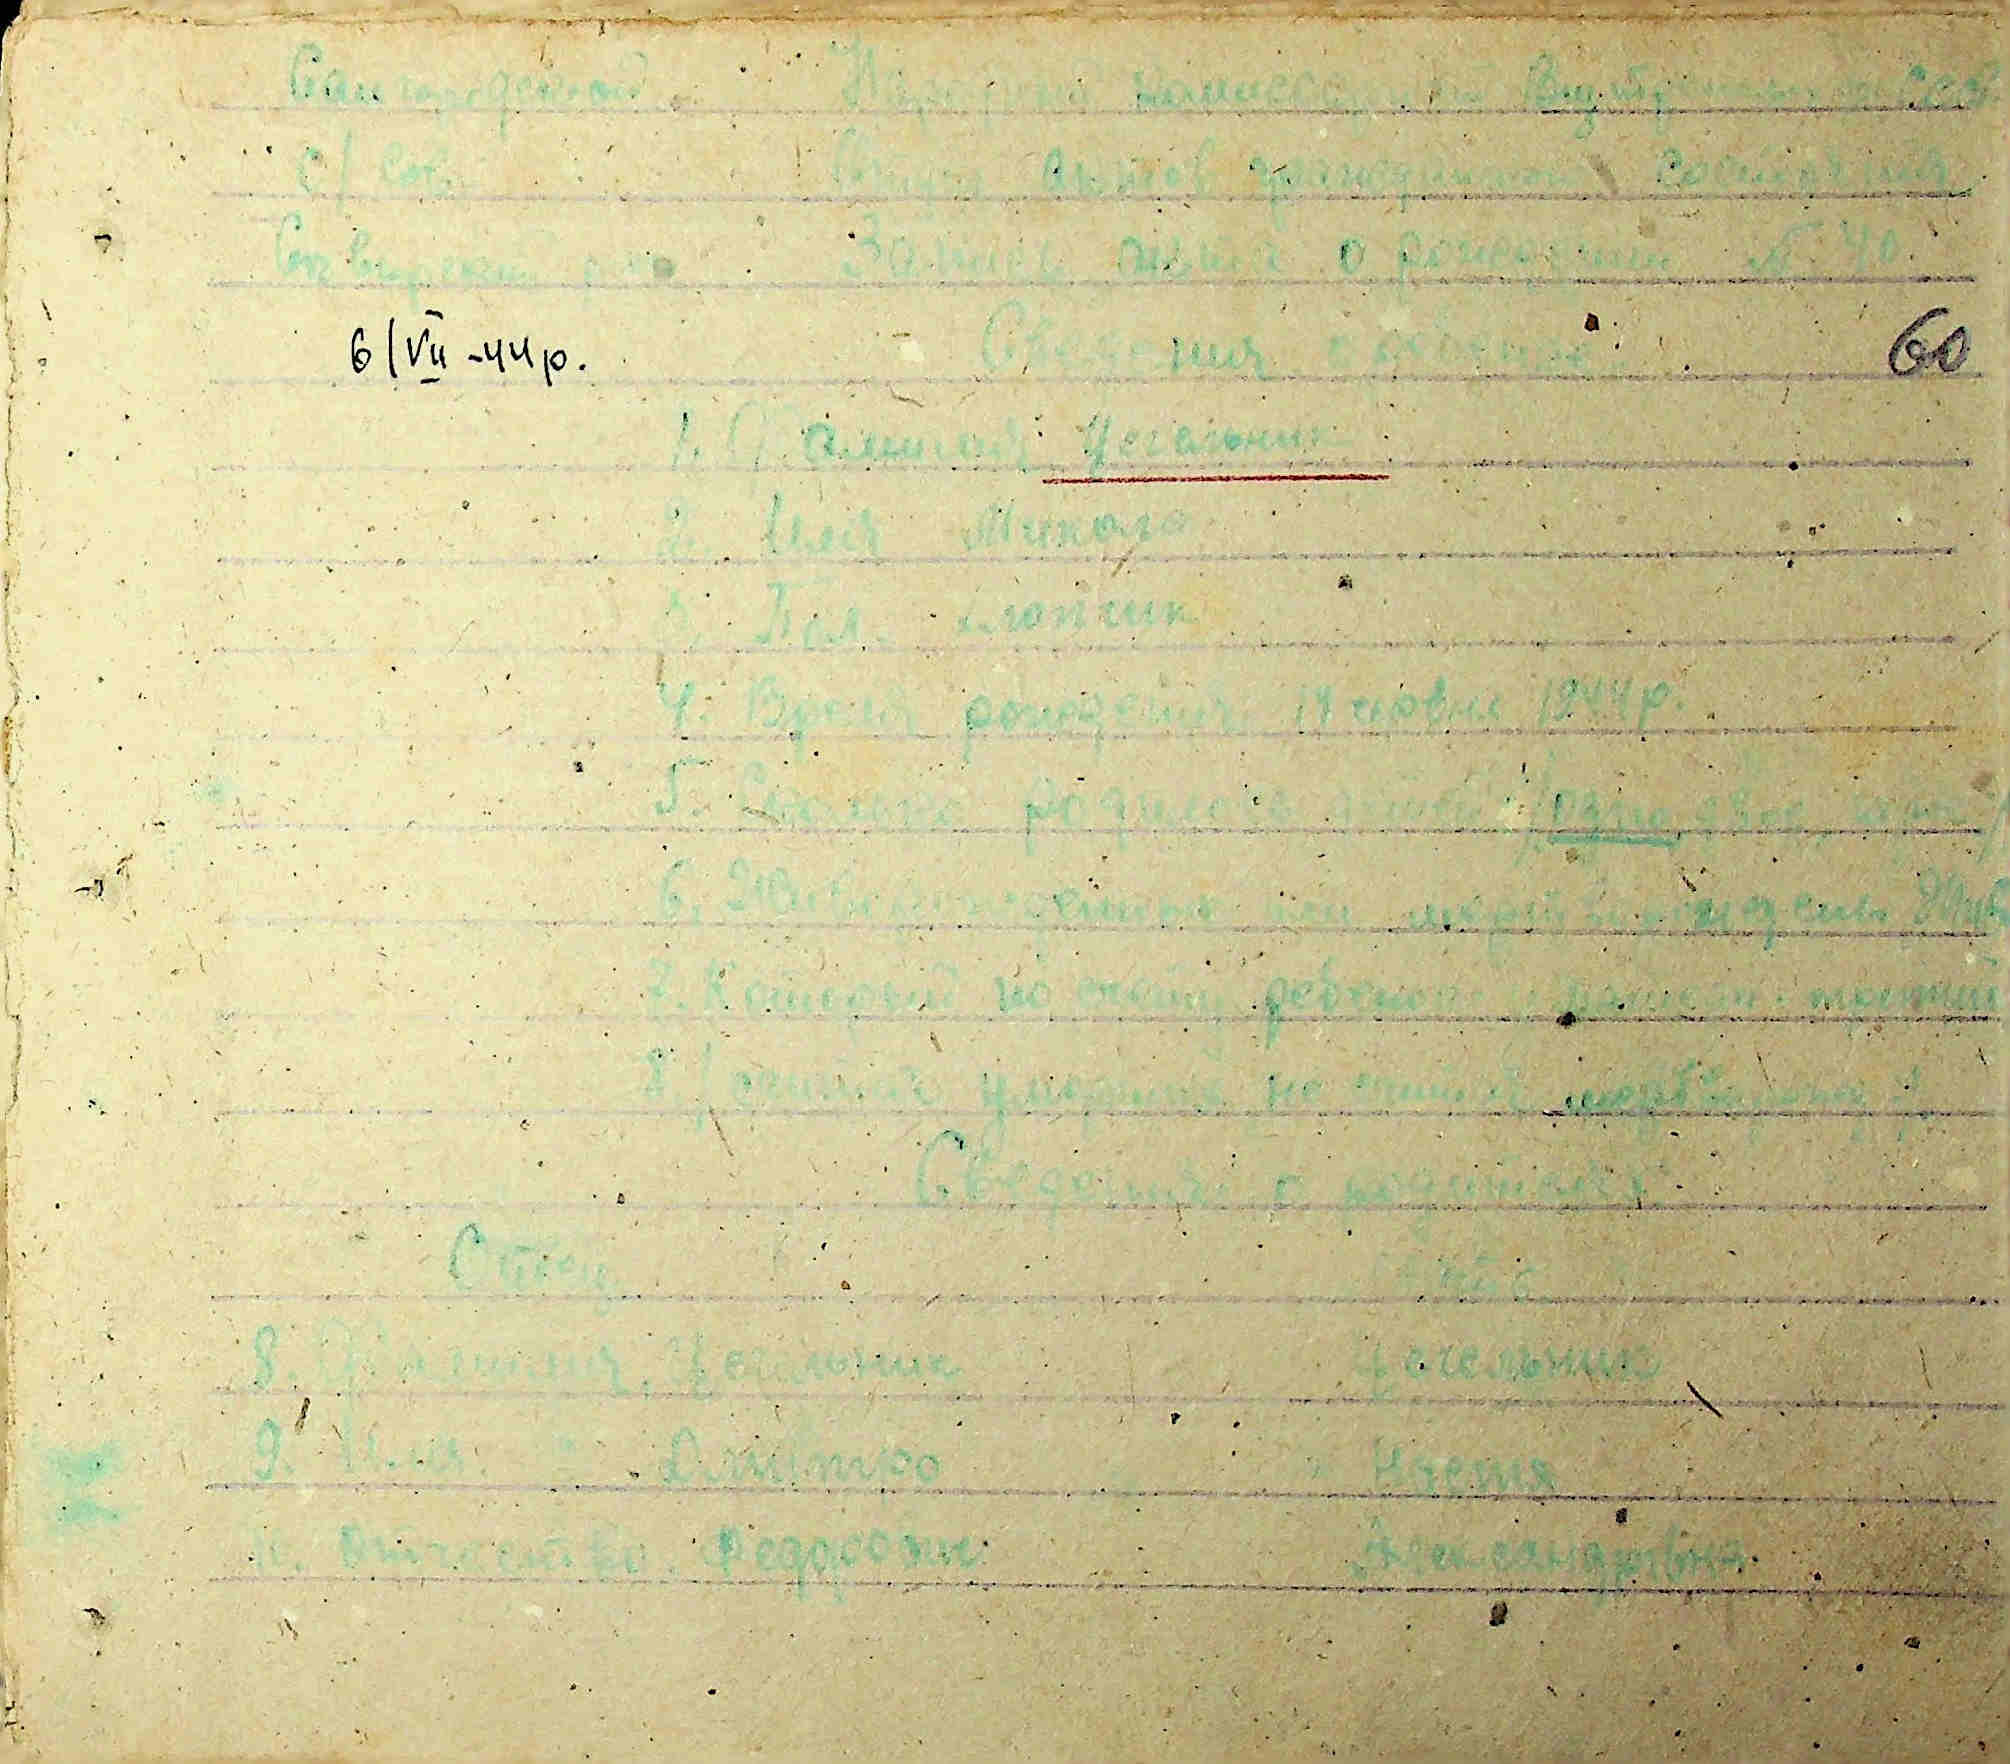 Самгородский Народный комиссариат Внутренних дел
с/сов. Отдел актов гражданского состояния
Запись акта о рождении № 40.
6/VII -44р. Сведения о ребенке 60
1. Фамилия Цегельник
2. Имя Микола
3. Пол. хлопчик
4. Время рождения 14 червня 1944р.
5. Сколько родилось детей /одно, двое, трое/
6. Живорожденный или мертворожден. Жив
7. Который по счету ребенок у матери. третий
8. /считая умерших не считая мертворожд./
Сведения о родителях
Отец Мать
8. Фамилия, Цегельник Цегельник
9. Имя. Дмитро Настя
10. отчество. Федорович Александровна.